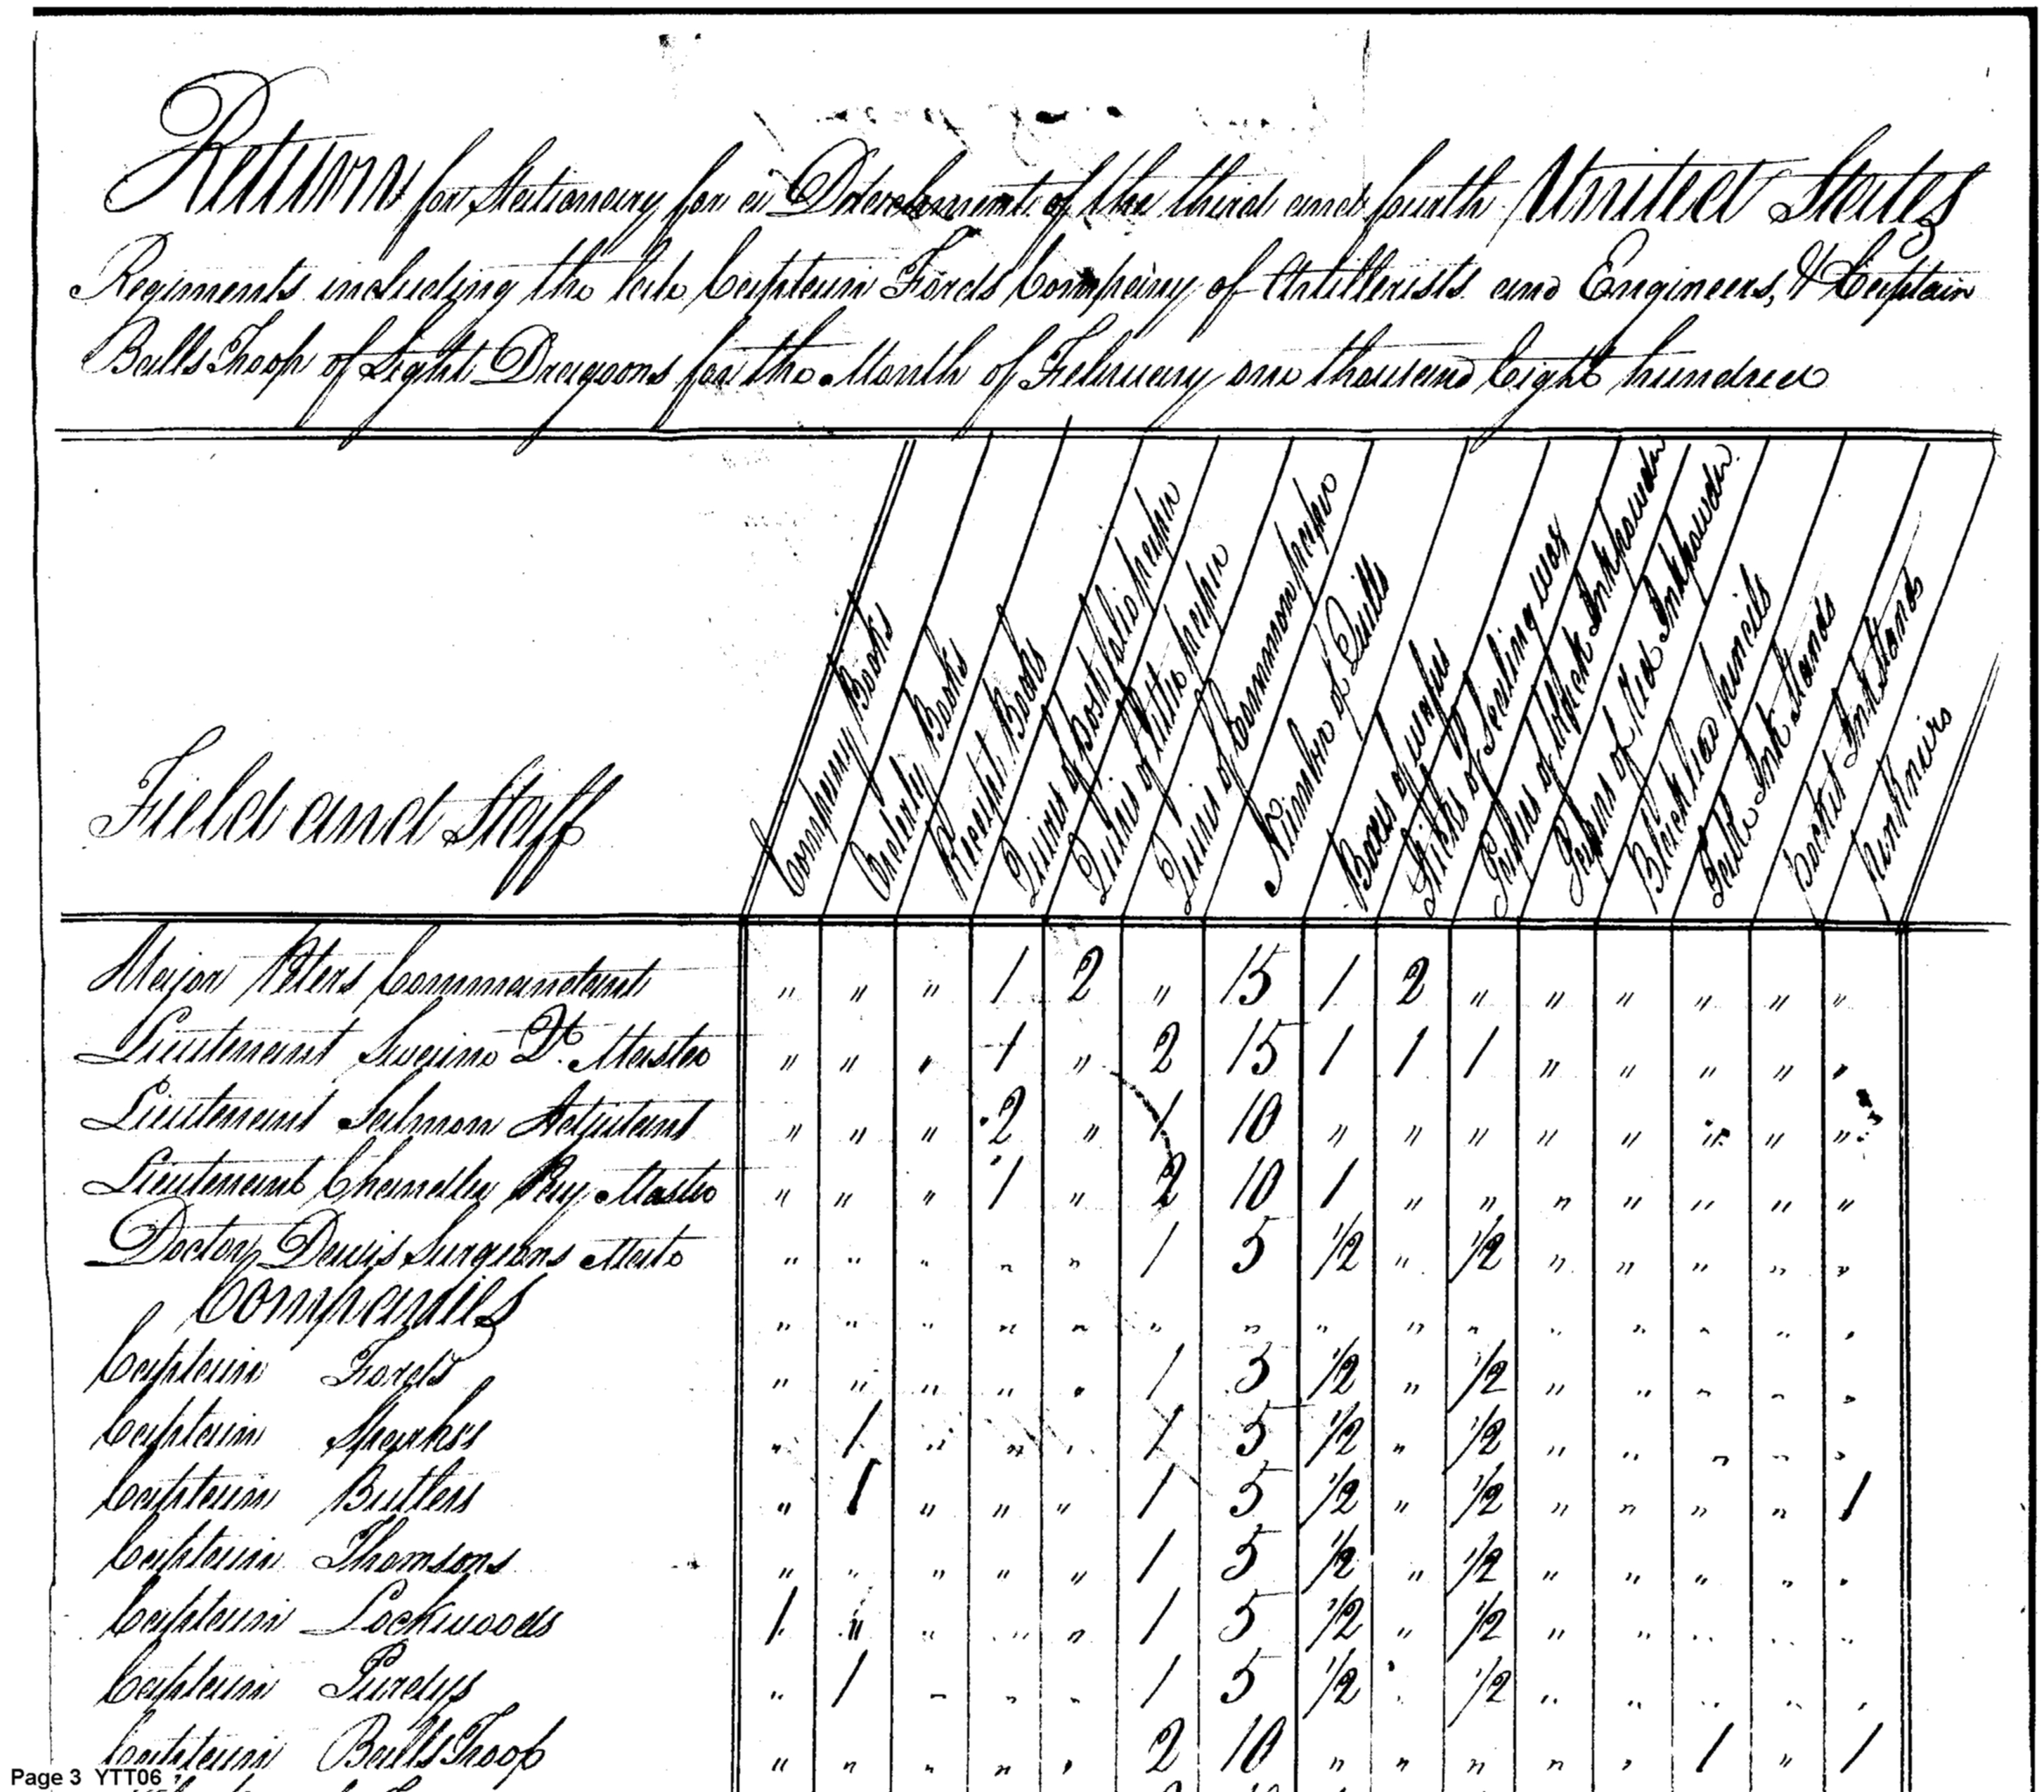 Return for Stationary for a Detachment of the third and fourth United States
Regiments including the late Captain Fords Company of Artillerists and Engineers, & Captain
Balls Troop of Light Dragoons for the Month of February one thousand Eight hundred
Field and Staff
Company Books
Orderly Books
Receipt Books
Quires of Post folio paper
Quires of letter paper
Quires of Common paper
Number of Quills
Boxes of wafers
Sticks of Sealing wax
Papers of black Inkpowder
Papers of Red Inkpowder
Black lead pencils
Ink Stands
Pocket Inkstands
Penknives
Major Peters Commandant " " " 1 2 " 15 1 2 " " " " " "
Lieutenant Swaine Qt. Master " " " 1 " 2 15 1 1 1 " " " " "
Lieutenant Salmon Adjutant " " " 2 " 1 10 " " " " " " " "
Lieutenant Chandler Pay Master " " " 1 " 2 10 1 " " " " " " "
Doctor Davis Surgeons Mate " " " " " 1 5 1/2 " 1/2 " " " " "
Companies " " " " " " " " " " " " " " "
Captain Fords " " " " " 1 5 1/2 " 1/2 " " " " "
Captain Sparkss " 1 " " " 1 5 1/2 " 1/2 " " " " "
Captain Butlers " 1 " " " 1 5 1/2 " 1/2 " " " " 1
Captain Thomsons " " " " " 1 5 1/2 " 1/2 " " " " "
Captain Lockwoods 1 " " " " 1 5 1/2 " 1/2 " " " " "
Captain Purdys " 1 " " " 1 5 1/2 " 1/2 " " " " "
Captain Balls Troop " " " " " 2 10 " " " " " 1 " 1
Page 3 YTT06